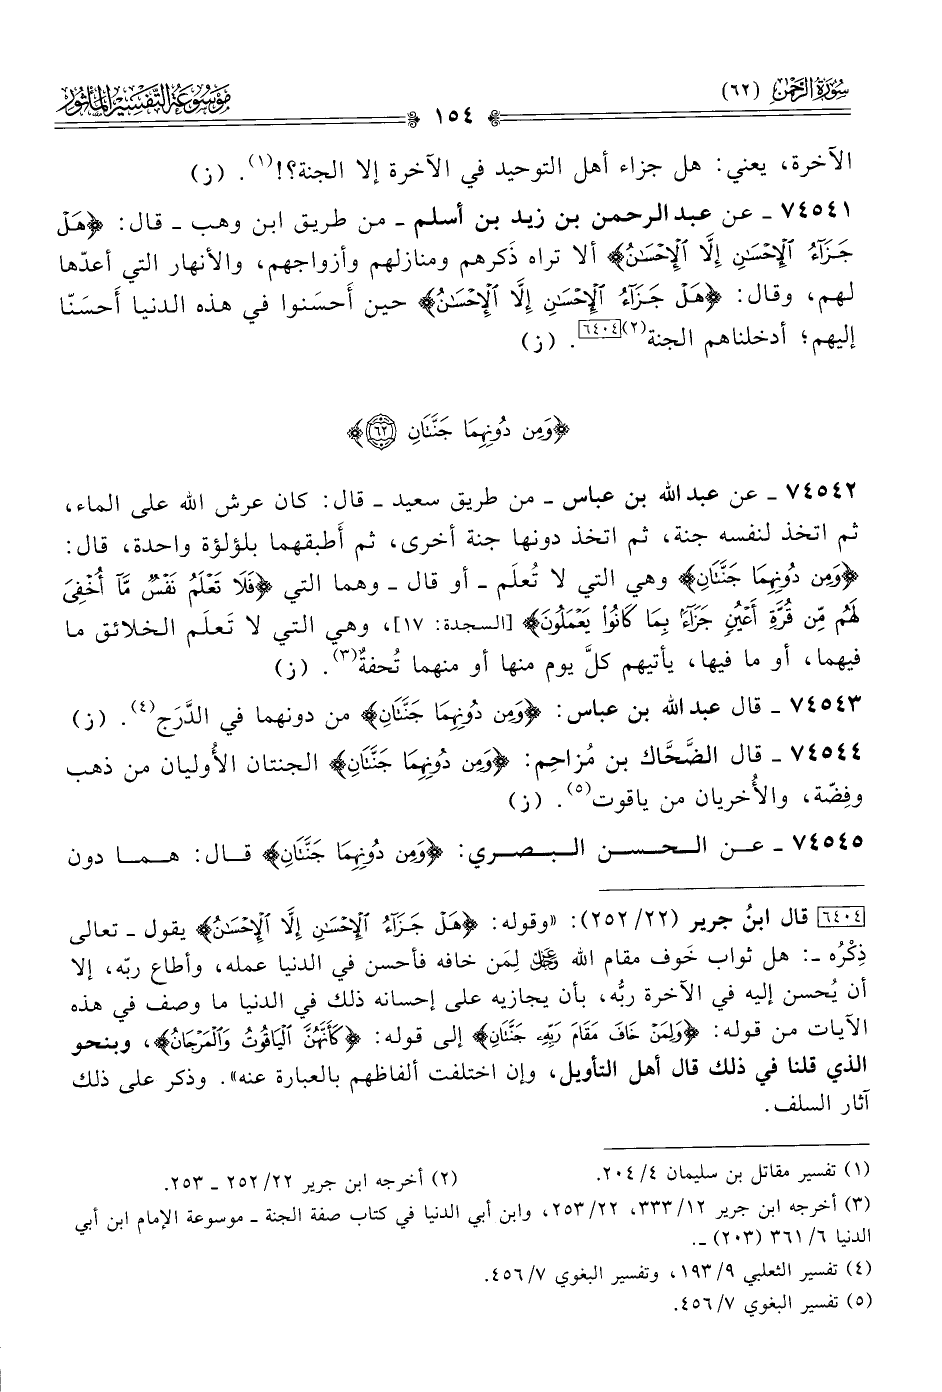 سُورَةُ الرَّحْمٰن (٦٢)
١٥٤
مَوْسُوعَةُ التَّفْسِيرِ المَأْثُور
الآخرة، يعني: هل جزاء أهل التوحيد في الآخرة إلا الجنة؟!(١). (ز)
٧٤٥٤١ ـ عن عبد الرحمن بن زيد بن أسلم ـ من طريق ابن وهب ـ قال: ﴿هَلْ
جَزَآءُ ٱلْإِحْسَٰنِ إِلَّا ٱلْإِحْسَٰنُ﴾ ألا تراه ذَكرهم ومنازلهم وأزواجهم، والأنهار التي أعدّها
لهم، وقال: ﴿هَلْ جَزَآءُ ٱلْإِحْسَٰنِ إِلَّا ٱلْإِحْسَٰنُ﴾ حين أَحسَنوا في هذه الدنيا أَحسَنّا
إليهم؛ أدخلناهم الجنة(٢)[٦٤٠٤]. (ز)
﴿وَمِن دُونِهِمَا جَنَّتَانِ ٦٢﴾
٧٤٥٤٢ ـ عن عبد الله بن عباس ـ من طريق سعيد ـ قال: كان عرش الله على الماء،
ثم اتخذ لنفسه جنة، ثم اتخذ دونها جنة أخرى، ثم أَطبقهما بلؤلؤة واحدة، قال:
﴿وَمِن دُونِهِمَا جَنَّتَانِ﴾ وهي التي لا تُعلَم ـ أو قال ـ وهما التي ﴿فَلَا تَعْلَمُ نَفْسٌ مَّآ أُخْفِىَ
لَهُم مِّن قُرَّةِ أَعْيُنٍ جَزَآءًۢ بِمَا كَانُوا۟ يَعْمَلُونَ﴾ [السجدة: ١٧]، وهي التي لا تَعلَم الخلائق ما
فيهما، أو ما فيها، يأتيهم كلَّ يوم منها أو منهما تُحفةٌ(٣). (ز)
٧٤٥٤٣ ـ قال عبد الله بن عباس: ﴿وَمِن دُونِهِمَا جَنَّتَانِ﴾ من دونهما في الدَّرَج(٤). (ز)
٧٤٥٤٤ ـ قال الضَّحَّاك بن مُزاحِم: ﴿وَمِن دُونِهِمَا جَنَّتَانِ﴾ الجنتان الأُوليان من ذهب
وفِضّة، والأُخريان من ياقوت(٥). (ز)
٧٤٥٤٥ ـ عـن الـحـسـن الـبـصـري: ﴿وَمِن دُونِهِمَا جَنَّتَانِ﴾ قـال: هـمـا دون
[٦٤٠٤] قال ابنُ جرير (٢٢/ ٢٥٢): «وقوله: ﴿هَلْ جَزَآءُ ٱلْإِحْسَٰنِ إِلَّا ٱلْإِحْسَٰنُ﴾ يقول ـ تعالى
ذِكْرُه ـ: هل ثواب خَوف مقام الله ﷿ لِمَن خافه فأحسن في الدنيا عمله، وأطاع ربّه، إلا
أن يُحسن إليه في الآخرة ربُّه، بأن يجازيه على إحسانه ذلك في الدنيا ما وصف في هذه
الآيات من قوله: ﴿وَلِمَنْ خَافَ مَقَامَ رَبِّهِۦ جَنَّتَانِ﴾ إلى قوله: ﴿كَأَنَّهُنَّ ٱلْيَاقُوتُ وَٱلْمَرْجَانُ﴾، وبنحو
الذي قلنا في ذلك قال أهل التأويل، وإن اختلفت ألفاظهم بالعبارة عنه». وذكر على ذلك
آثار السلف.
(١) تفسير مقاتل بن سليمان ٤/ ٢٠٤. (٢) أخرجه ابن جرير ٢٢/ ٢٥٢ ـ ٢٥٣.
(٣) أخرجه ابن جرير ١٢/ ٣٣٣، ٢٢/ ٢٥٣، وابن أبي الدنيا في كتاب صفة الجنة ـ موسوعة الإمام ابن أبي
الدنيا ٦/ ٣٦١ (٢٠٣) ـ.
(٤) تفسير الثعلبي ٩/ ١٩٣، وتفسير البغوي ٧/ ٤٥٦.
(٥) تفسير البغوي ٧/ ٤٥٦.